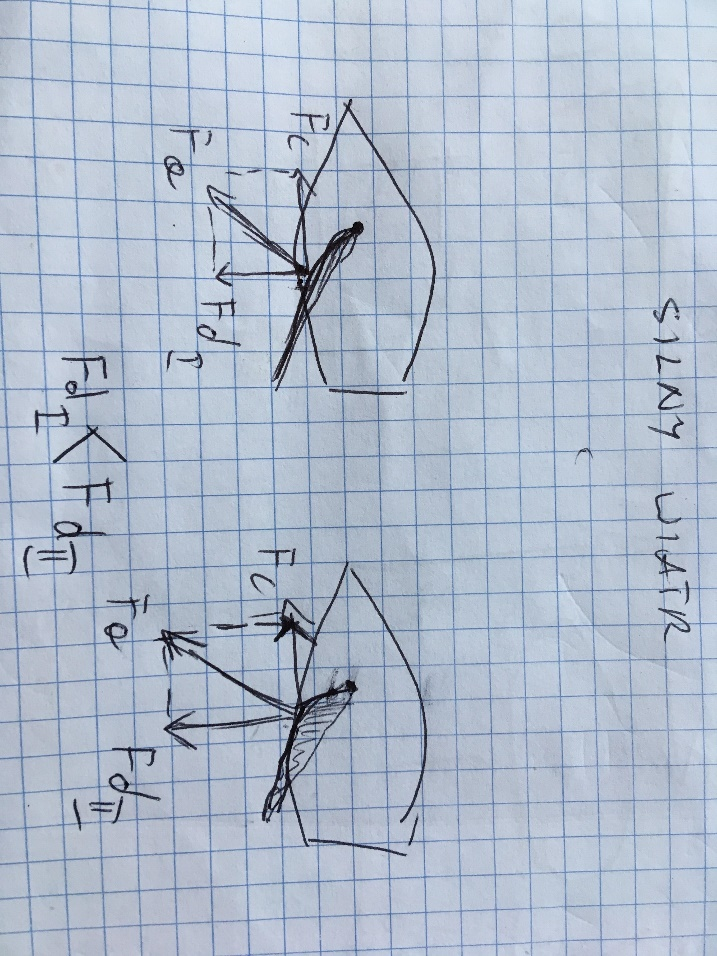 SILNY WIATR
Fc
Fa
Fd I
Fc
Fa
Fd II
Fd I < Fd II